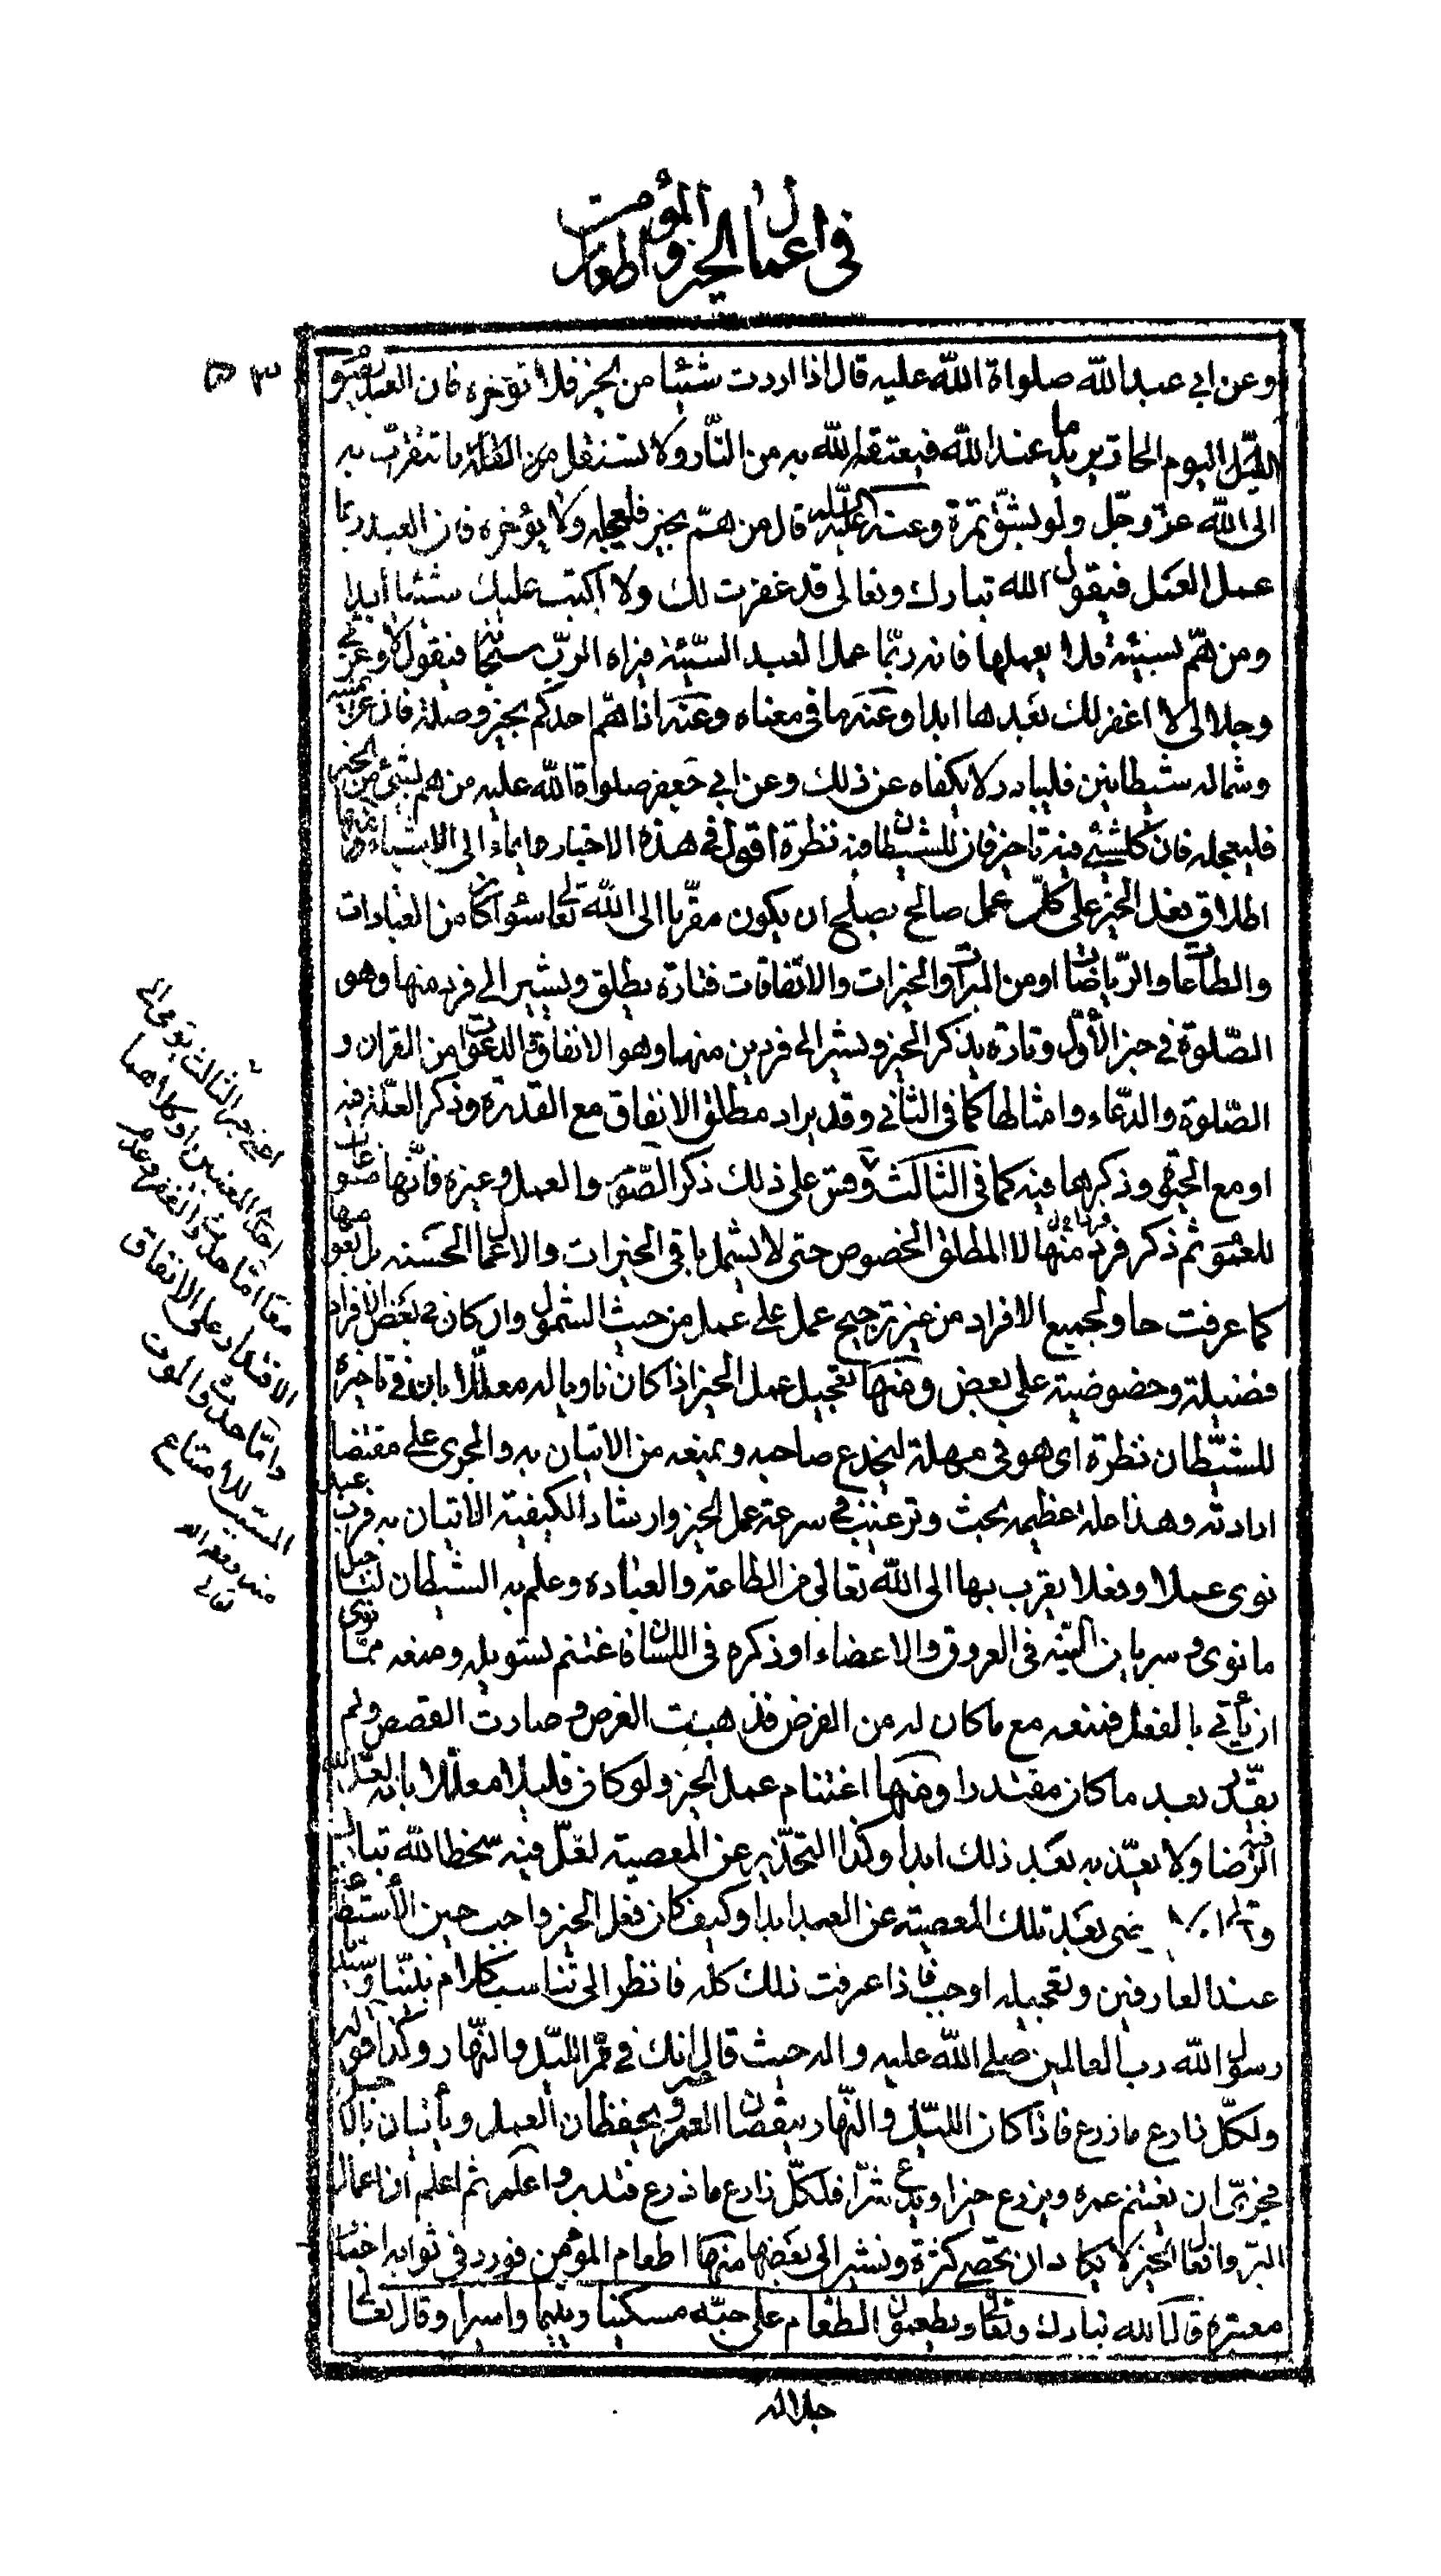 في اعمال الخير واطعام المؤمن
٥٣
وعن ابي عبد الله صلواة الله عليه قال اذا اردت شيئا من الخير فلا تؤخره فان العبد يصوم
اليوم الحار يريد ما عند الله فيعتقه الله به من النار ولا تستقل ما تتقرب به
الى الله عز وجل ولو بشق تمرة وعنه عليه السلام قال من هم بخير فليعجله ولا يؤخره فان العبد ربما
عمل العمل فيقول الله تبارك وتعالى قد غفرت لك ولا اكتب عليك شيئا أبدا
ومن هم بسيئة فلا يعملها فانه ربما عمل العبد السيئة فيراه الرب سبحانه فيقول لا وعزتي
وجلالي لا اغفر لك بعدها ابدا وعنه ما في معناه وعنه اذا هم احدكم بخير وصلة فان عن يمينه
وشماله شيطانين فليبادر لا يكفاه عن ذلك وعن ابي جعفر صلواة الله عليه من هم بشئ من الخير
فليعجله فان كل شئ فيه تاخير فان للشيطان فيه نظرة اقول في هذه الاخبار ايماء الى الاشياء منها
اطلاق فعل الخير على كل عمل صالح يصلح ان يكون مقربا الى الله تعالى سواء كان من العبادات
والطاعات والرياضات او من المبرات والخيرات والانفاقات فتارة يطلق ويشير الى فرد منها وهو
الصلوة في خبر الأول وتارة يذكر الخير ويشير الى فردين منهما وهو الانفاق والدعوات من القران و
الصلوة والدعاء وامثالها كما في الثاني وقد يراد مطلق الانفاق مع القدرة وذكر العلة فيه
او مع الحيوة وذكرها فيه كما في الثالث وقس على ذلك ذكر الصوم والعمل وغيره فانها
للعموم ثم ذكر فرد منها لا المطلق المخصوص حتى لا يشمل باقي الخيرات والاعمال الحسنه بل
كما عرفت حاو لجميع الافراد من غير ترجيح عمل على عمل من حيث الشمول وان كان في بعض الافراد
فضيلة وخصوصية على بعض ومنها تعجيل عمل الخير اذا كان ناويا له معللا بان في تاخيره
للشيطان نظرة اى هو في مهلة ليخدع صاحبه ويمنعه من الاتيان به والجرى على مقتضا
ارادته وهذا علة عظيمه بحث وترغيب في سرعة عمل الخير وارشاد الكيفية الاتيان به فرب عبد
نوى عملا وفعلا يقرب بها الى الله تعالى من الطاعة والعبادة وعلم به الشيطان
ما نوى في سريان النية في العروق والاعضاء او ذكره في اللسان فاغتنم بتسويله ومنعه مما نوى
ان يأتي بالفعل فمنعه مع ما كان له من الفرض فذهبت الفرص وصارت الغصص ولم
يقدر بعد ما كان مقتدرا ومنها اغتنام عمل الخير ولو كان قليلا معللا بانه لعل
فيه الرضا ولا يعذبه بعد ذلك ابدا وكذا التحذير عن المعصية لعل فيه سخط الله تبارك
وتعالى يرضى بعد تلك المعصية عن العبد ابدا وكيف كان فعل الخير واجب حين
عند العارفين وتعجيله اوجب فاذا عرفت ذلك كله فانظر الى تناسب كلام نبينا وسيدنا
رسول الله رب العالمين صلى الله عليه واله حيث قال انك في ممر الليل والنهار وكذا قوله
ولكل زارع ما زرع فاذا كان الليل والنهار ينقصان العمر ويحفظان العمل ويأتيان
فحري ان يغتنم عمره ويزرع خيرا ويدع شرا فلكل زارع ما زرع فتدبر واعلم ثم اعلم ان اعمال
البر وافعال الخير لا يكاد ان تحصى كثرة ونشير الى بعضها منها اطعام المؤمن فورد في ثوابه اخبار
معتبرة قال الله تبارك وتعالى ويطعمون الطعام على حبه مسكينا ويتيما واسيرا وقال تعالى
جل جلاله
اعني خبر الثالث يومي الى
احد المعنيين او كلاهما
معا اما حدوث الفقر وعدم
الاقتدار على الانفاق
واما حدوث الموت
المسبب للامتناع
منه وفقه الله